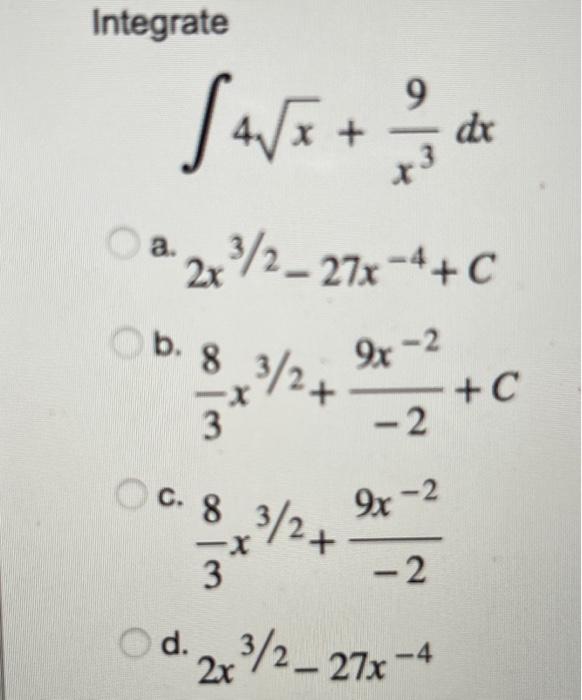 Integrate
∫ 4√x + 9/x^3 dx
a. 2x^3/2 – 27x^–4 + C
b. 8/3 x^3/2 + 9x^–2/–2 + C
c. 8/3 x^3/2 + 9x^–2/–2
d. 2x^3/2 – 27x^–4